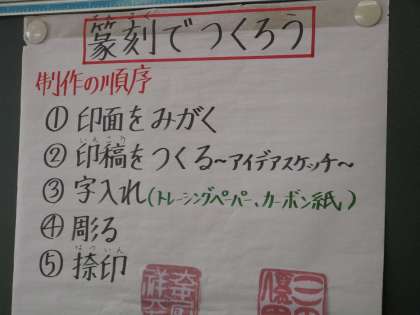 篆刻でつくろう
制作の順序
① 印面をみがく
② 印稿をつくる～アイデアスケッチ～
③ 字入れ(トレーシングペーパー、カーボン紙)
④ 彫る
⑤ 捺印